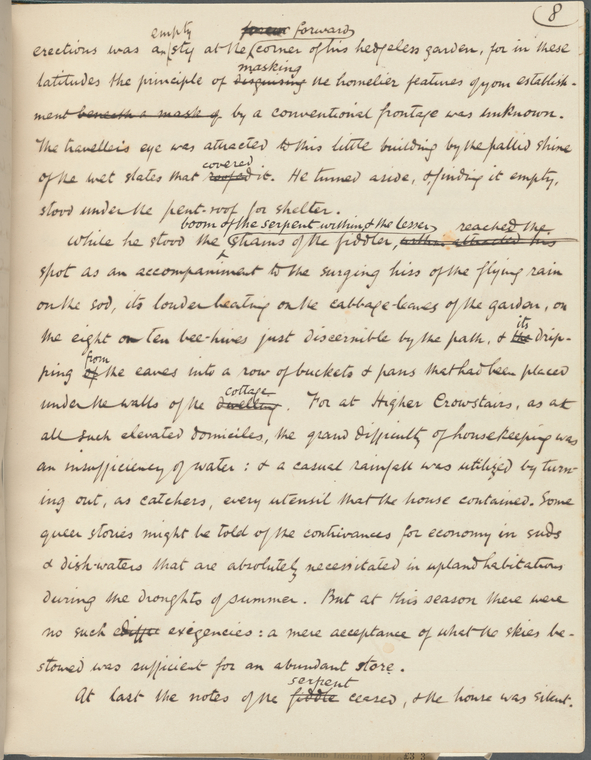 8
empty former forward
erections was a sty at the corner of his hedgeless garden, for in these
masking
latitudes the principle of disguising the homelier features of your establish-
ment beneath a mask of by a conventional frontage was unknown.
The traveller's eye was attracted to this little building by the pallid shine
covered
of the wet slates that roofed it. He turned aside, & finding it empty,
stood under the pent-roof for shelter.
boom of the serpent within & the lesser reached the
While he stood the strains of the fiddler,
spot as an accompaniment to the surging hiss of the flying rain
on the sod, its louder beating on the cabbage-leaves of the garden, on
its
the eight or ten bee-hives just discernible by the path, & the drip-
from
ping of the eaves into a row of buckets & pans that had been placed
cottage
under the walls of the dwelling. For at Higher Crowstairs, as at
all such elevated domiciles, the grand difficulty of housekeeping was
an insufficiency of water: & a casual rainfall was utilized by turn-
ing out, as catchers, every utensil that the house contained. Some
queer stories might be told of the contrivances for economy in suds
& dish-waters that are absolutely necessitated in upland habitations
during the droughts of summer. But at this season there were
no such exigencies: a mere acceptance of what the skies be-
stowed was sufficient for an abundant store.
serpent
At last the notes of the fiddle ceased, & the house was silent.